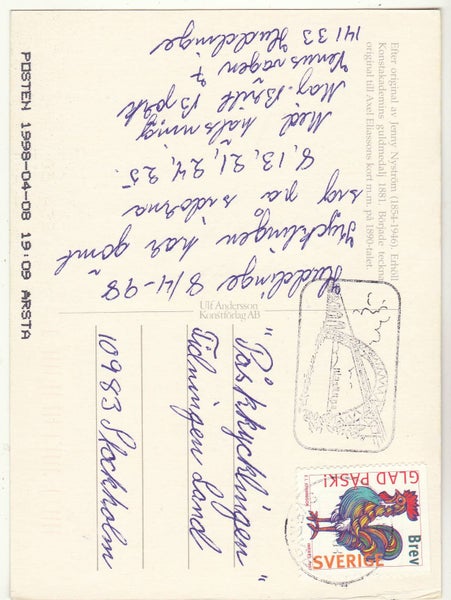 Huddinge 8/4-98
Kycklingen har gömt
sig på sidorna
8, 13, 21, 24, 25.
Med hälsning
Maj-Britt Björk
Venusvägen 7
141 33 Huddinge
Efter original av Jenny Nyström (1854-1946). Erhöll
Konstakademins guldmedalj 1881. Började teckna
original till Axel Eliassons kort m.m. på 1890-talet.
Ulf Andersson
Konstförlag AB
"Påskkycklingen"
Tidningen Land
10983 Stockholm
POSTEN 1998-04-08 19:09 ÅRSTA
GLAD PÅSK!
Brev
SVERIGE